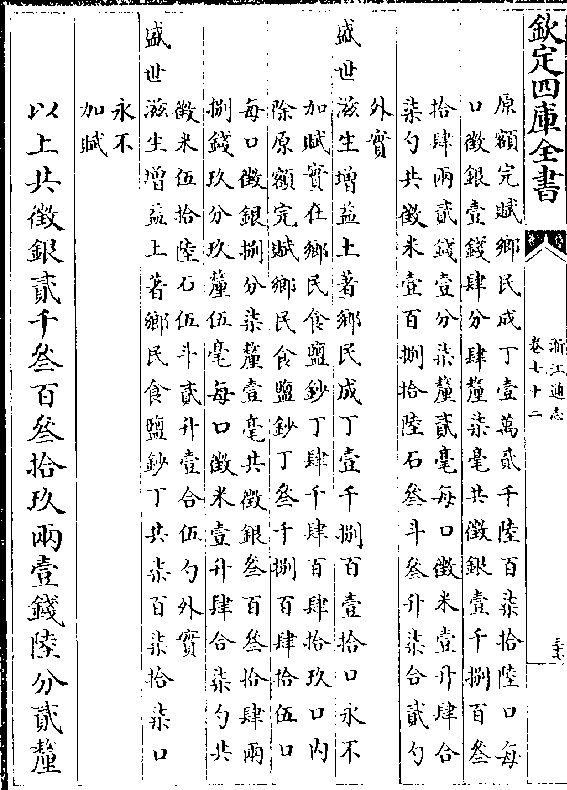 欽定四庫全書
浙江通志
卷七十二
原額完賦鄉民成丁壹萬貳千陸百柒拾陸口每
口徵銀壹錢肆分肆釐柒毫共徵銀壹千捌百叁
拾肆兩貳錢壹分柒釐貳毫每口徵米壹升肆合
柒勺共徵米壹百捌拾陸石叁斗叁升柒合貳勺
外實
盛世滋生增益土著鄉民成丁壹千捌百壹拾口永不
加賦實在鄉民食鹽鈔丁肆千肆百肆拾玖口內
除原額完賦鄉民食鹽鈔丁叁千捌百肆拾伍口
每口徵銀捌分柒釐壹毫共徵銀叁百叁拾肆兩
捌錢玖分玖釐伍毫每口徵米壹升肆合柒勺共
徵米伍拾陸石伍斗貳升壹合伍勺外實
盛世滋生增益土著鄉民食鹽鈔丁共柒百柒拾柒口
永不
加賦
以上共徵銀貳千叁百叁拾玖兩壹錢陸分貳釐